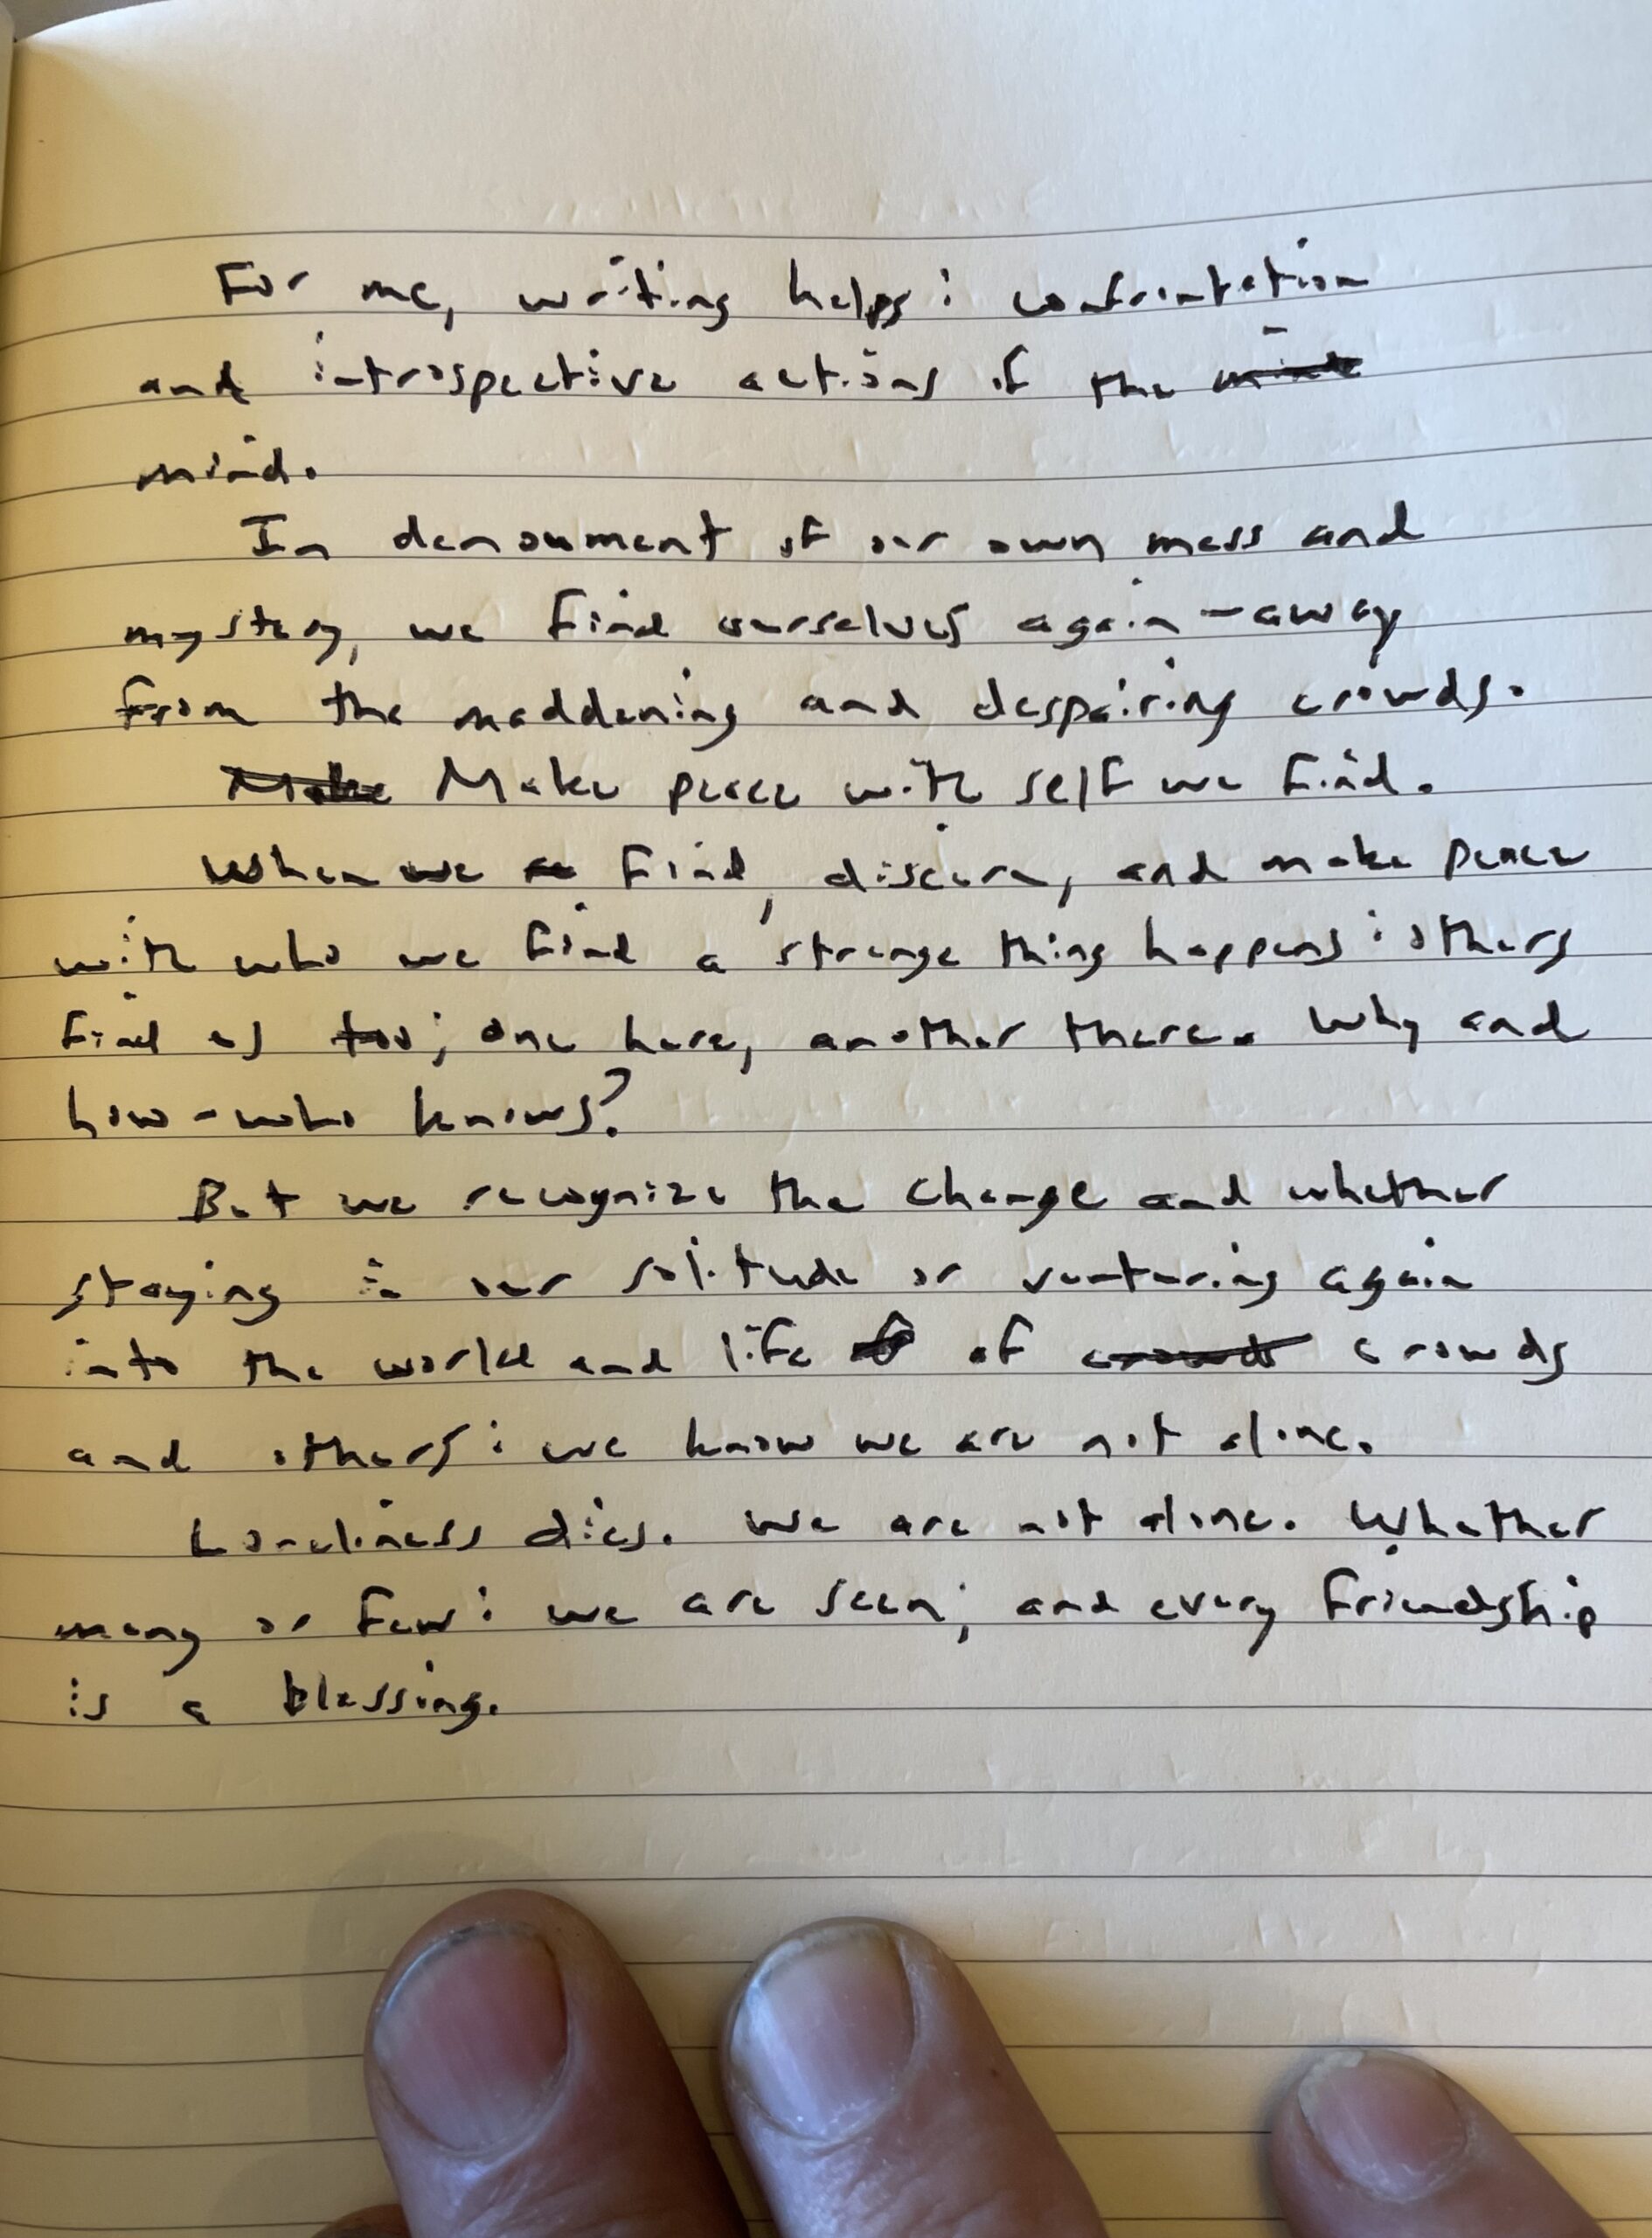 For me, writing helps: confrontation
and introspective actions of the mind
mind.
In denoument of our own mess and
mystery, we find ourselves again - away
from the maddening and despairing crowds.
Make Make peace with self we find.
When we find, discern, and make peace
with who we find a strange thing happens: others
find us too; one here, another there. Why and
how - who knows?
But we recognize the change and whether
staying in our solitude or venturing again
into the world and life of crowds crowds
and others: we know we are not alone.
Loneliness dies. We are not alone. Whether
many or few: we are seen; and every friendship
is a blessing.